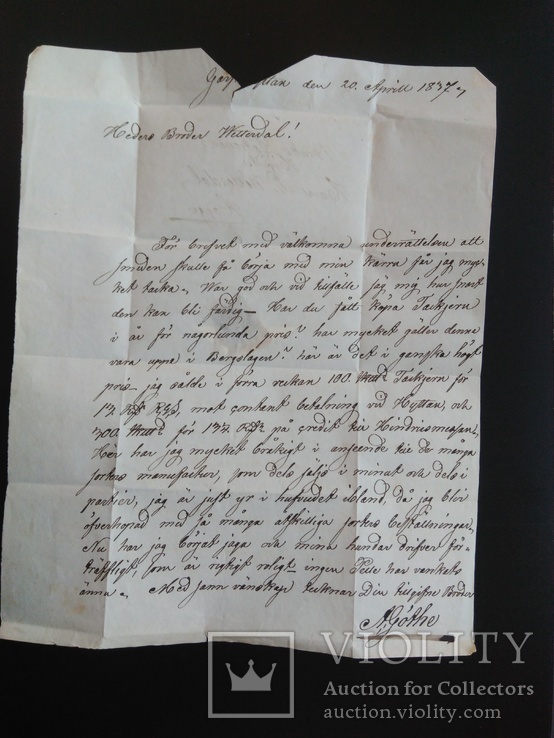 den 20. Aprill 1837.
Heders Broder Wetterdal!
För brefvet med välkomna underrättelsen att
smeden skulle få börja med min kärra får jag myc-
ket tacka. War god och vid tilfälle säj mig, hur snart
den kan bli färdig – Har du fått köpa Tackjern
i år för någorlunda pris? hur mycket gäller denne
vara uppe i Bergslagen? här är det i ganska högt
pris – jag sålde i förra veckan 100. Tackjern för
17 mot contant betalning vid Hyttan, och
300. för 17½ på credit till Hindersmessan,
Her har jag mycket bråkigt i anseende till de många
sorters manufacturer, som dels säljs i minut och dels i
partier, jag är just yr i hufvudet ibland, då jag blir
öfverhopad med så många åtskilliga sorters beställningar.
Nu har jag börjat jaga och mina hundar drifver för-
träffligt, som är rigtigt roligt, ingen har vankats
ännu. Med sann vänskap tecknar Din tillgifne Broder
Göthe
VIOLITY
Auction for Collectors
auction.violity.com